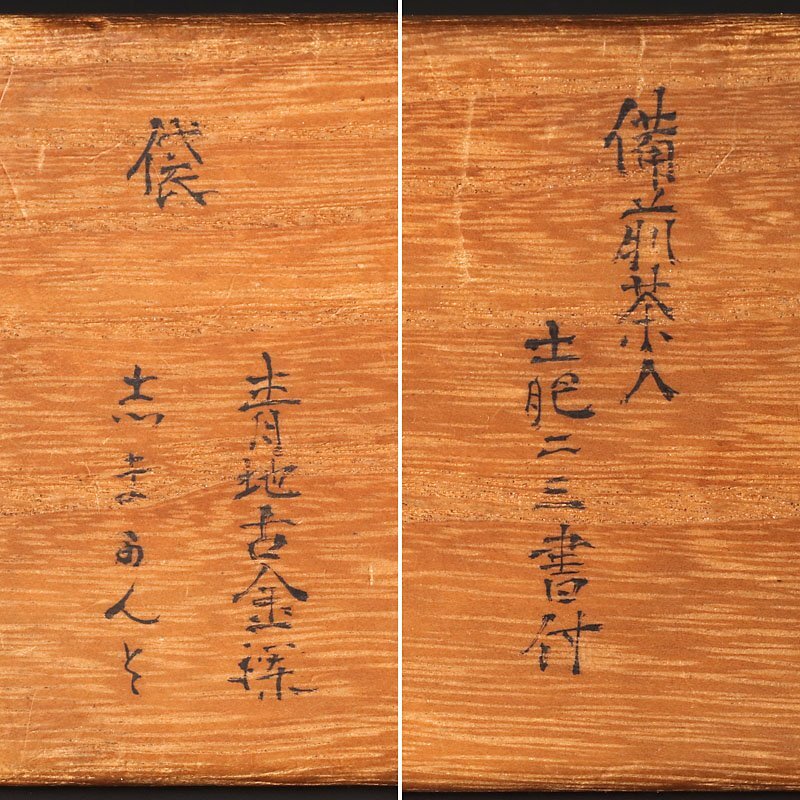 備前茶入
土肥二三書付
袋
青地古金襴
志まかんと